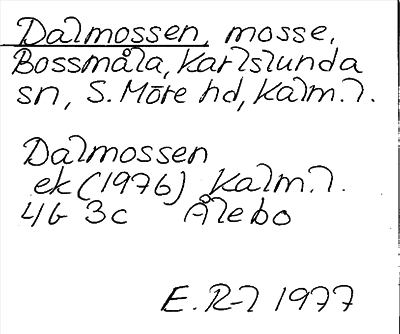 Dalmossen, mosse,
Bossmåla, Karlslunda
sn, S. Möre hd, Kalm. l.
Dalmossen
ek (1976) Kalm. l.
4G 3c Ålebo
E. R-l 1977